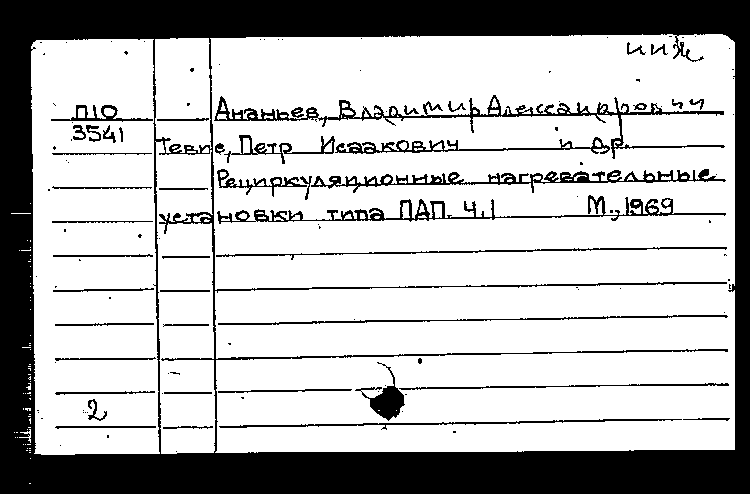 инж
П10 Ананьев, Владимир Александрович
3541 Тевис, Петр Исаакович и др.
Рециркуляционные нагревательные
установки типа ПАП. Ч.1 М., 1969
2